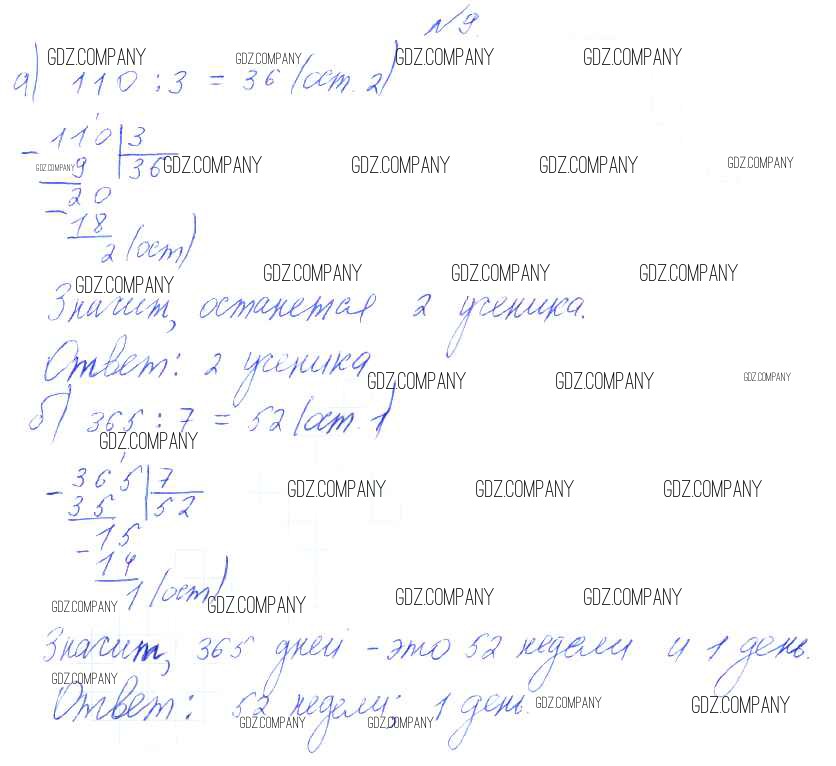 № 9.
GDZ.COMPANY GDZ.COMPANY GDZ.COMPANY GDZ.COMPANY
а) 110 : 3 = 36 (ост. 2)
- 110 | 3
GDZ.COMPANY 9 36 GDZ.COMPANY GDZ.COMPANY GDZ.COMPANY GDZ.COMPANY
- 20
18
2 (ост)
GDZ.COMPANY GDZ.COMPANY GDZ.COMPANY GDZ.COMPANY
Значит, останется 2 ученика.
Ответ: 2 ученика
GDZ.COMPANY GDZ.COMPANY GDZ.COMPANY
б) 365 : 7 = 52 (ост. 1)
GDZ.COMPANY
- 365 | 7
GDZ.COMPANY GDZ.COMPANY GDZ.COMPANY
35 52
- 15
14
1 (ост)
GDZ.COMPANY GDZ.COMPANY GDZ.COMPANY GDZ.COMPANY
Значит, 365 дней - это 52 недели и 1 день.
GDZ.COMPANY
Ответ: 52 недели; 1 день.
GDZ.COMPANY GDZ.COMPANY
GDZ.COMPANY GDZ.COMPANY